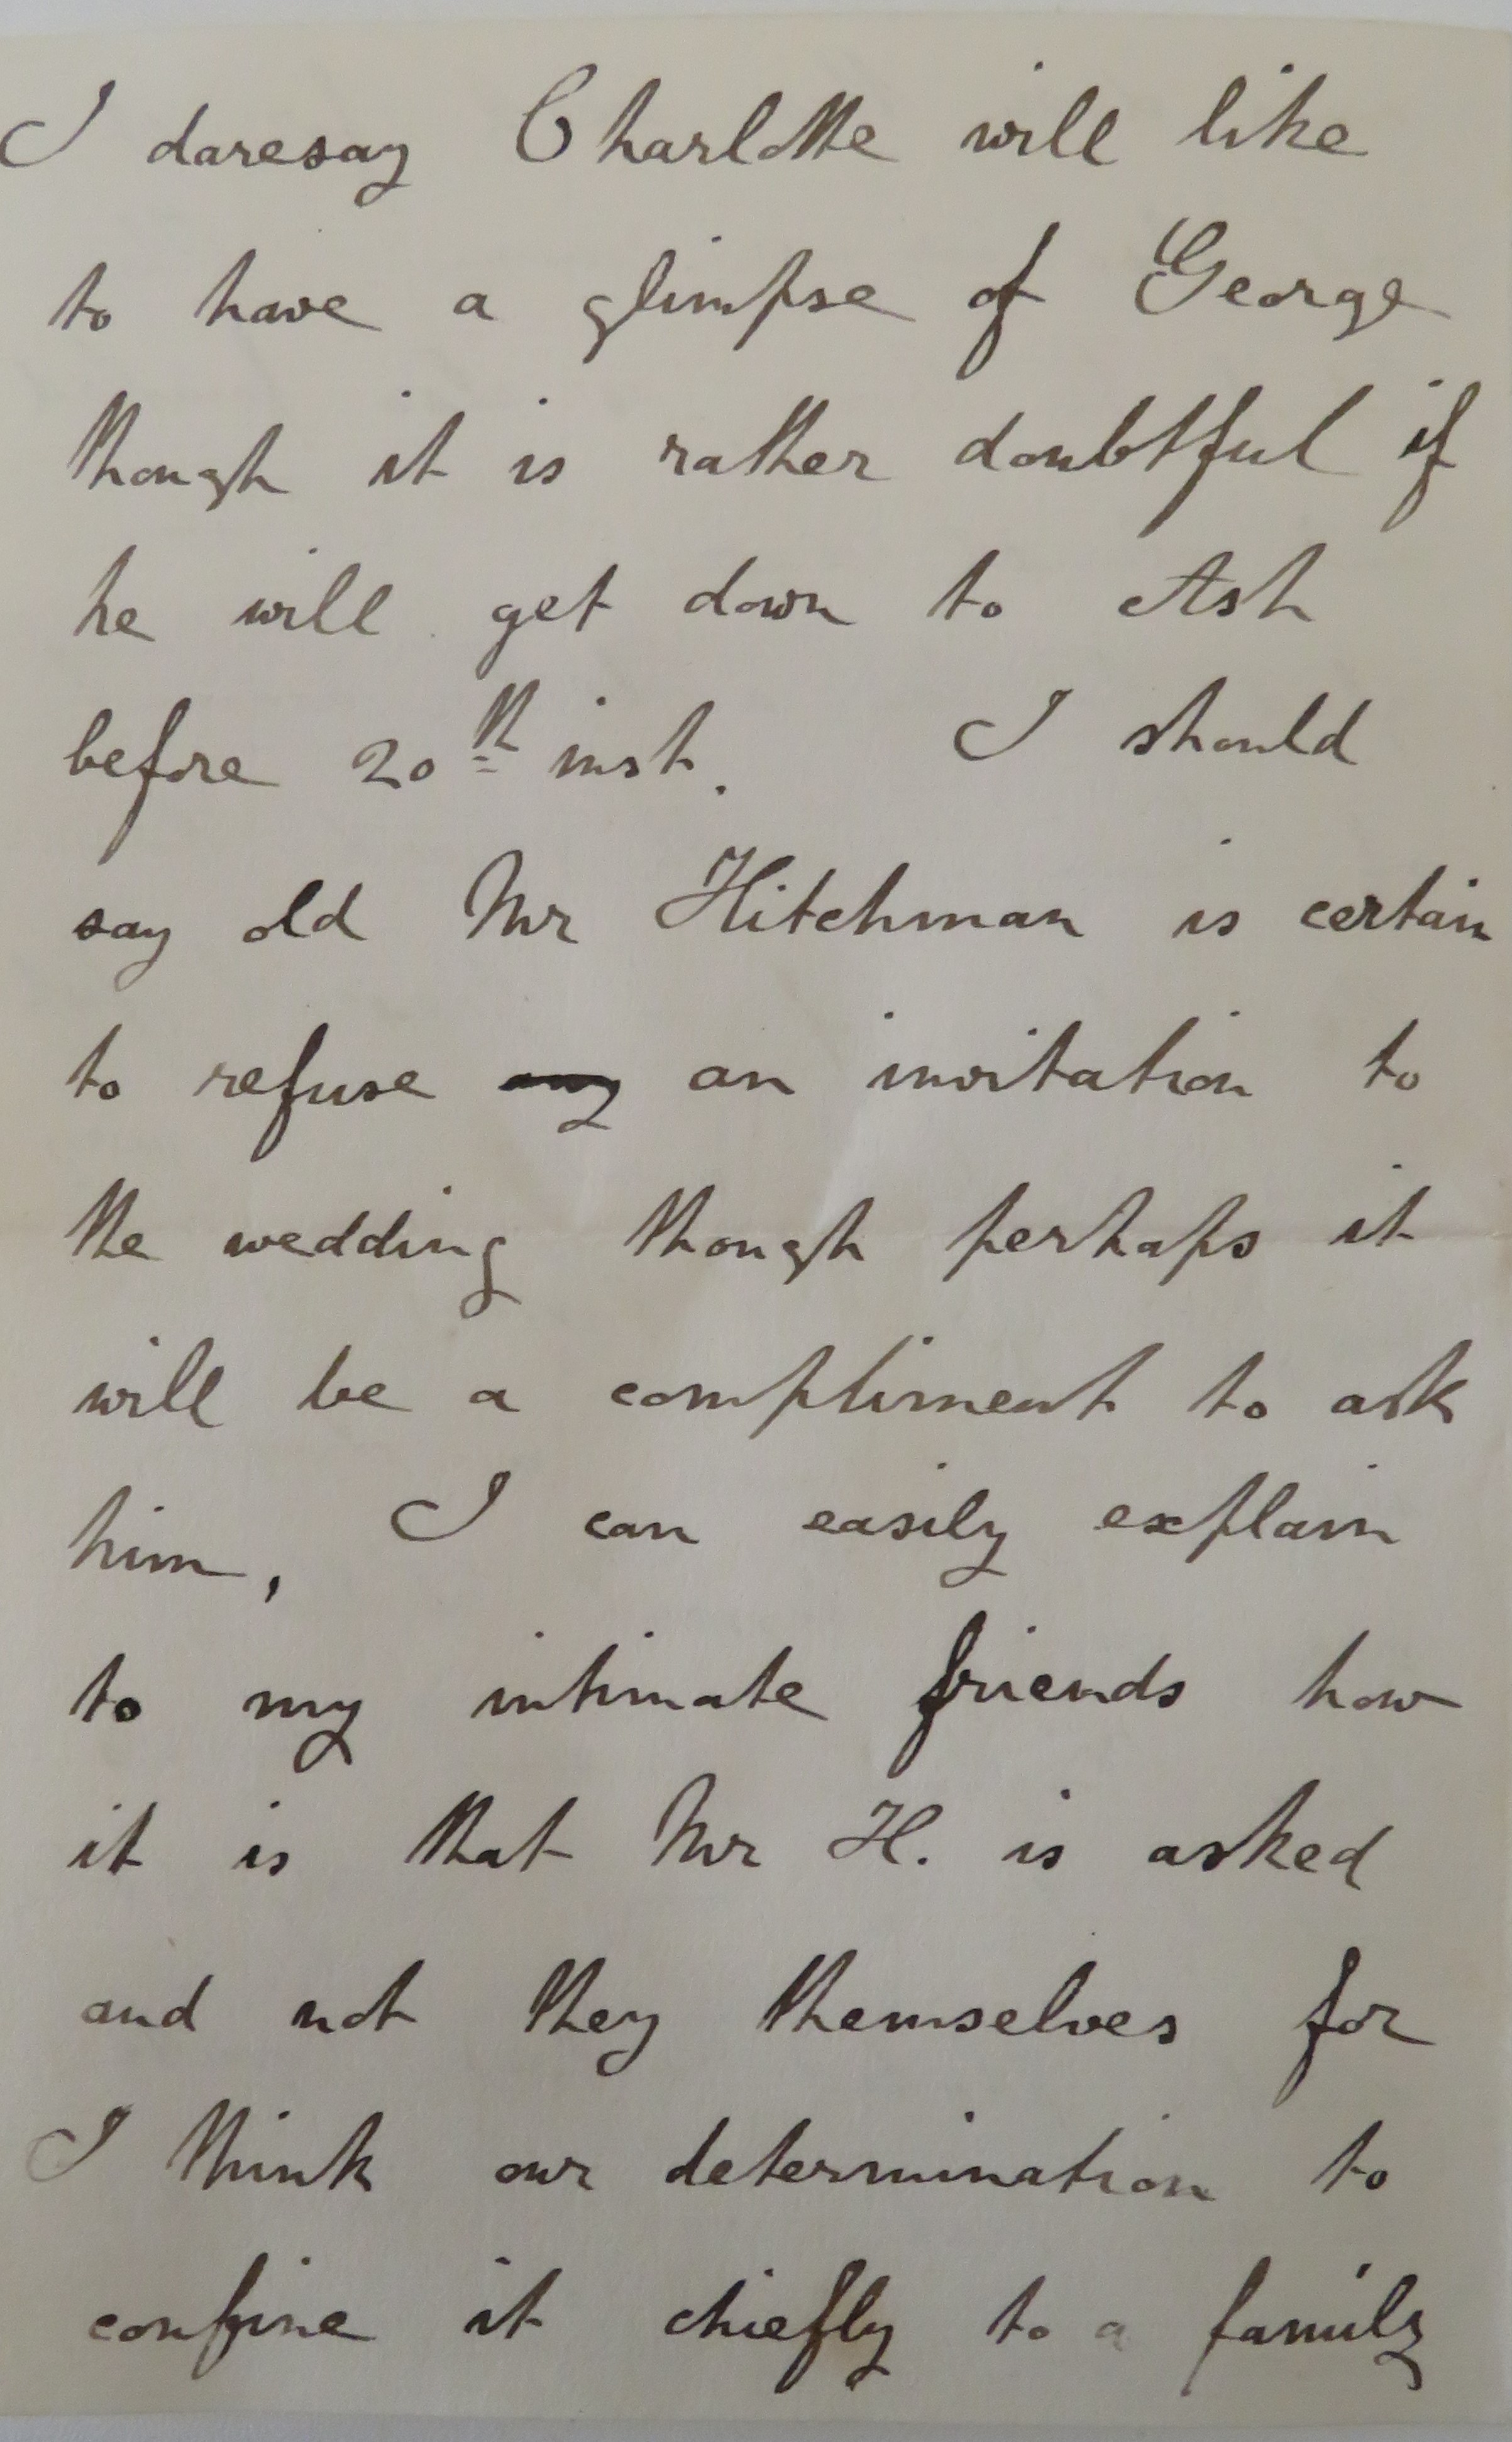 I daresay Charlotte will like
to have a glimpse of George
though it is rather doubtful if
he will get down to Ash
before 20th inst. I should
say old Mr Hitchman is certain
to refuse any an invitation to
the wedding though perhaps it
will be a compliment to ask
him, I can easily explain
to my intimate friends how
it is that Mr H. is asked
and not they themselves for
I think our determination to
confine it chiefly to a family